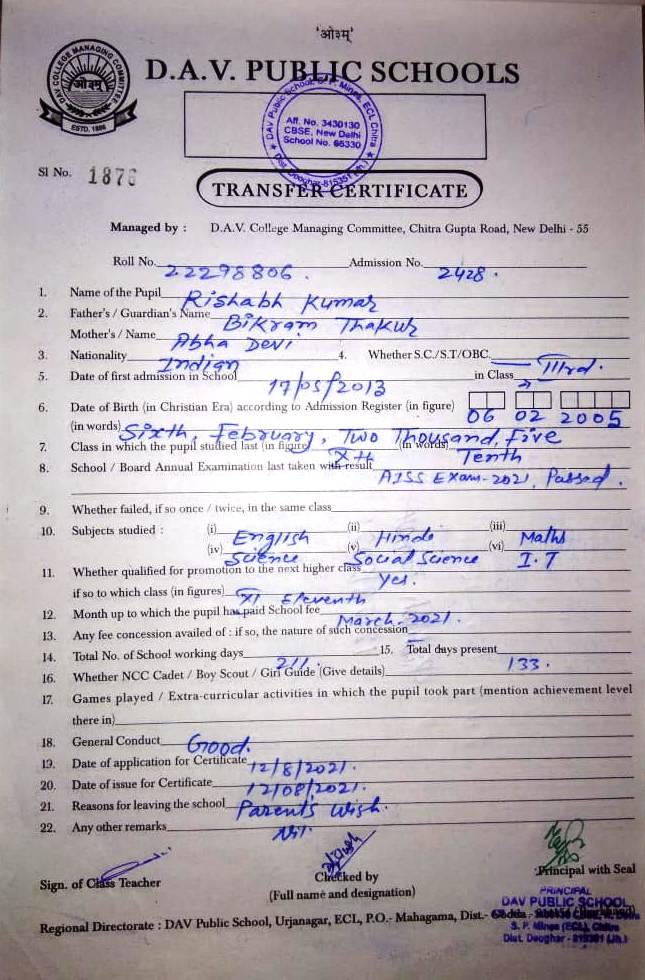 'ओ३म्'
DAV COLLEGE MANAGING COMMITTEE
ओ३म्
ESTD. 1886
D.A.V. PUBLIC SCHOOLS
DAV Public School, S. P. Mines, ECL Chitra
Aff. No. 3430130
CBSE, New Delhi
School No. 66330
Dist. Deoghar-815351 (Jh.)
Sl No. 1876
TRANSFER CERTIFICATE
Managed by : D.A.V. College Managing Committee, Chitra Gupta Road, New Delhi - 55
Roll No. 22298806. Admission No. 2428.
1. Name of the Pupil Rishabh Kumar
2. Father's / Guardian's Name Bikram Thakur
Mother's / Name Abha Devi
3. Nationality Indian 4. Whether S.C./S.T/OBC. —
5. Date of first admission in School 17/05/2013 in Class IIIrd.
6. Date of Birth (in Christian Era) according to Admission Register (in figure) 06 02 2005
(in words) Sixth, February, Two Thousand, Five
7. Class in which the pupil studied last (in figure) Xth (in words) Tenth
8. School / Board Annual Examination last taken with result AISS Exam-2021, Passed.
9. Whether failed, if so once / twice, in the same class
10. Subjects studied : (i) English (ii) Hindi (iii) Maths
(iv) Science (v) Social Science (vi) I.T
11. Whether qualified for promotion to the next higher class Yes.
if so to which class (in figures) XI Eleventh
12. Month up to which the pupil has paid School fee March-2021.
13. Any fee concession availed of : if so, the nature of such concession —
14. Total No. of School working days 211. 15. Total days present 133.
16. Whether NCC Cadet / Boy Scout / Girl Guide (Give details)
17. Games played / Extra-curricular activities in which the pupil took part (mention achievement level
there in)
18. General Conduct Good.
19. Date of application for Certificate 12/8/2021.
20. Date of issue for Certificate 12/08/2021.
21. Reasons for leaving the school Parent's Wish.
22. Any other remarks Nil.
Sign. of Class Teacher
Checked by
(Full name and designation)
Principal with Seal
PRINCIPAL
DAV PUBLIC SCHOOL
S. P. Mines (ECL), Chitra
Dist. Deoghar - 815351 (Jh.)
Regional Directorate : DAV Public School, Urjanagar, ECL, P.O.- Mahagama, Dist.-